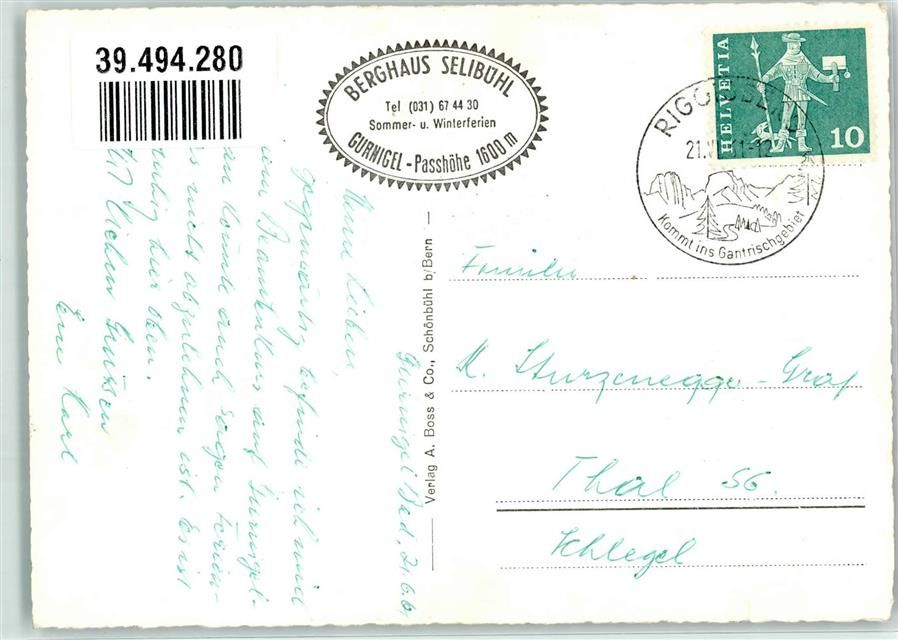 39.494.280
BERGHAUS SELIBÜHL
Tel (031) 67 44 30
Sommer- u. Winterferien
GURNIGEL - Passhöhe 1600 m
HELVETIA
10
21.
Kommt ins Gantrischgebiet
Verlag A. Boss & Co., Schönbühl b/Bern
Gurnigel Bad, 21.6.61
Meine Lieben,
Gegenwärtig befinde ich mich
Beamtenkurs auf Gurnigel-
könnte auch sagen Ferien-
nicht abzulehnen ist. Es ist
hier oben.
lieben Grüssen
Euer Karl
Familie
K. Sturzenegger-Graf
Thal SG.
Schlegel